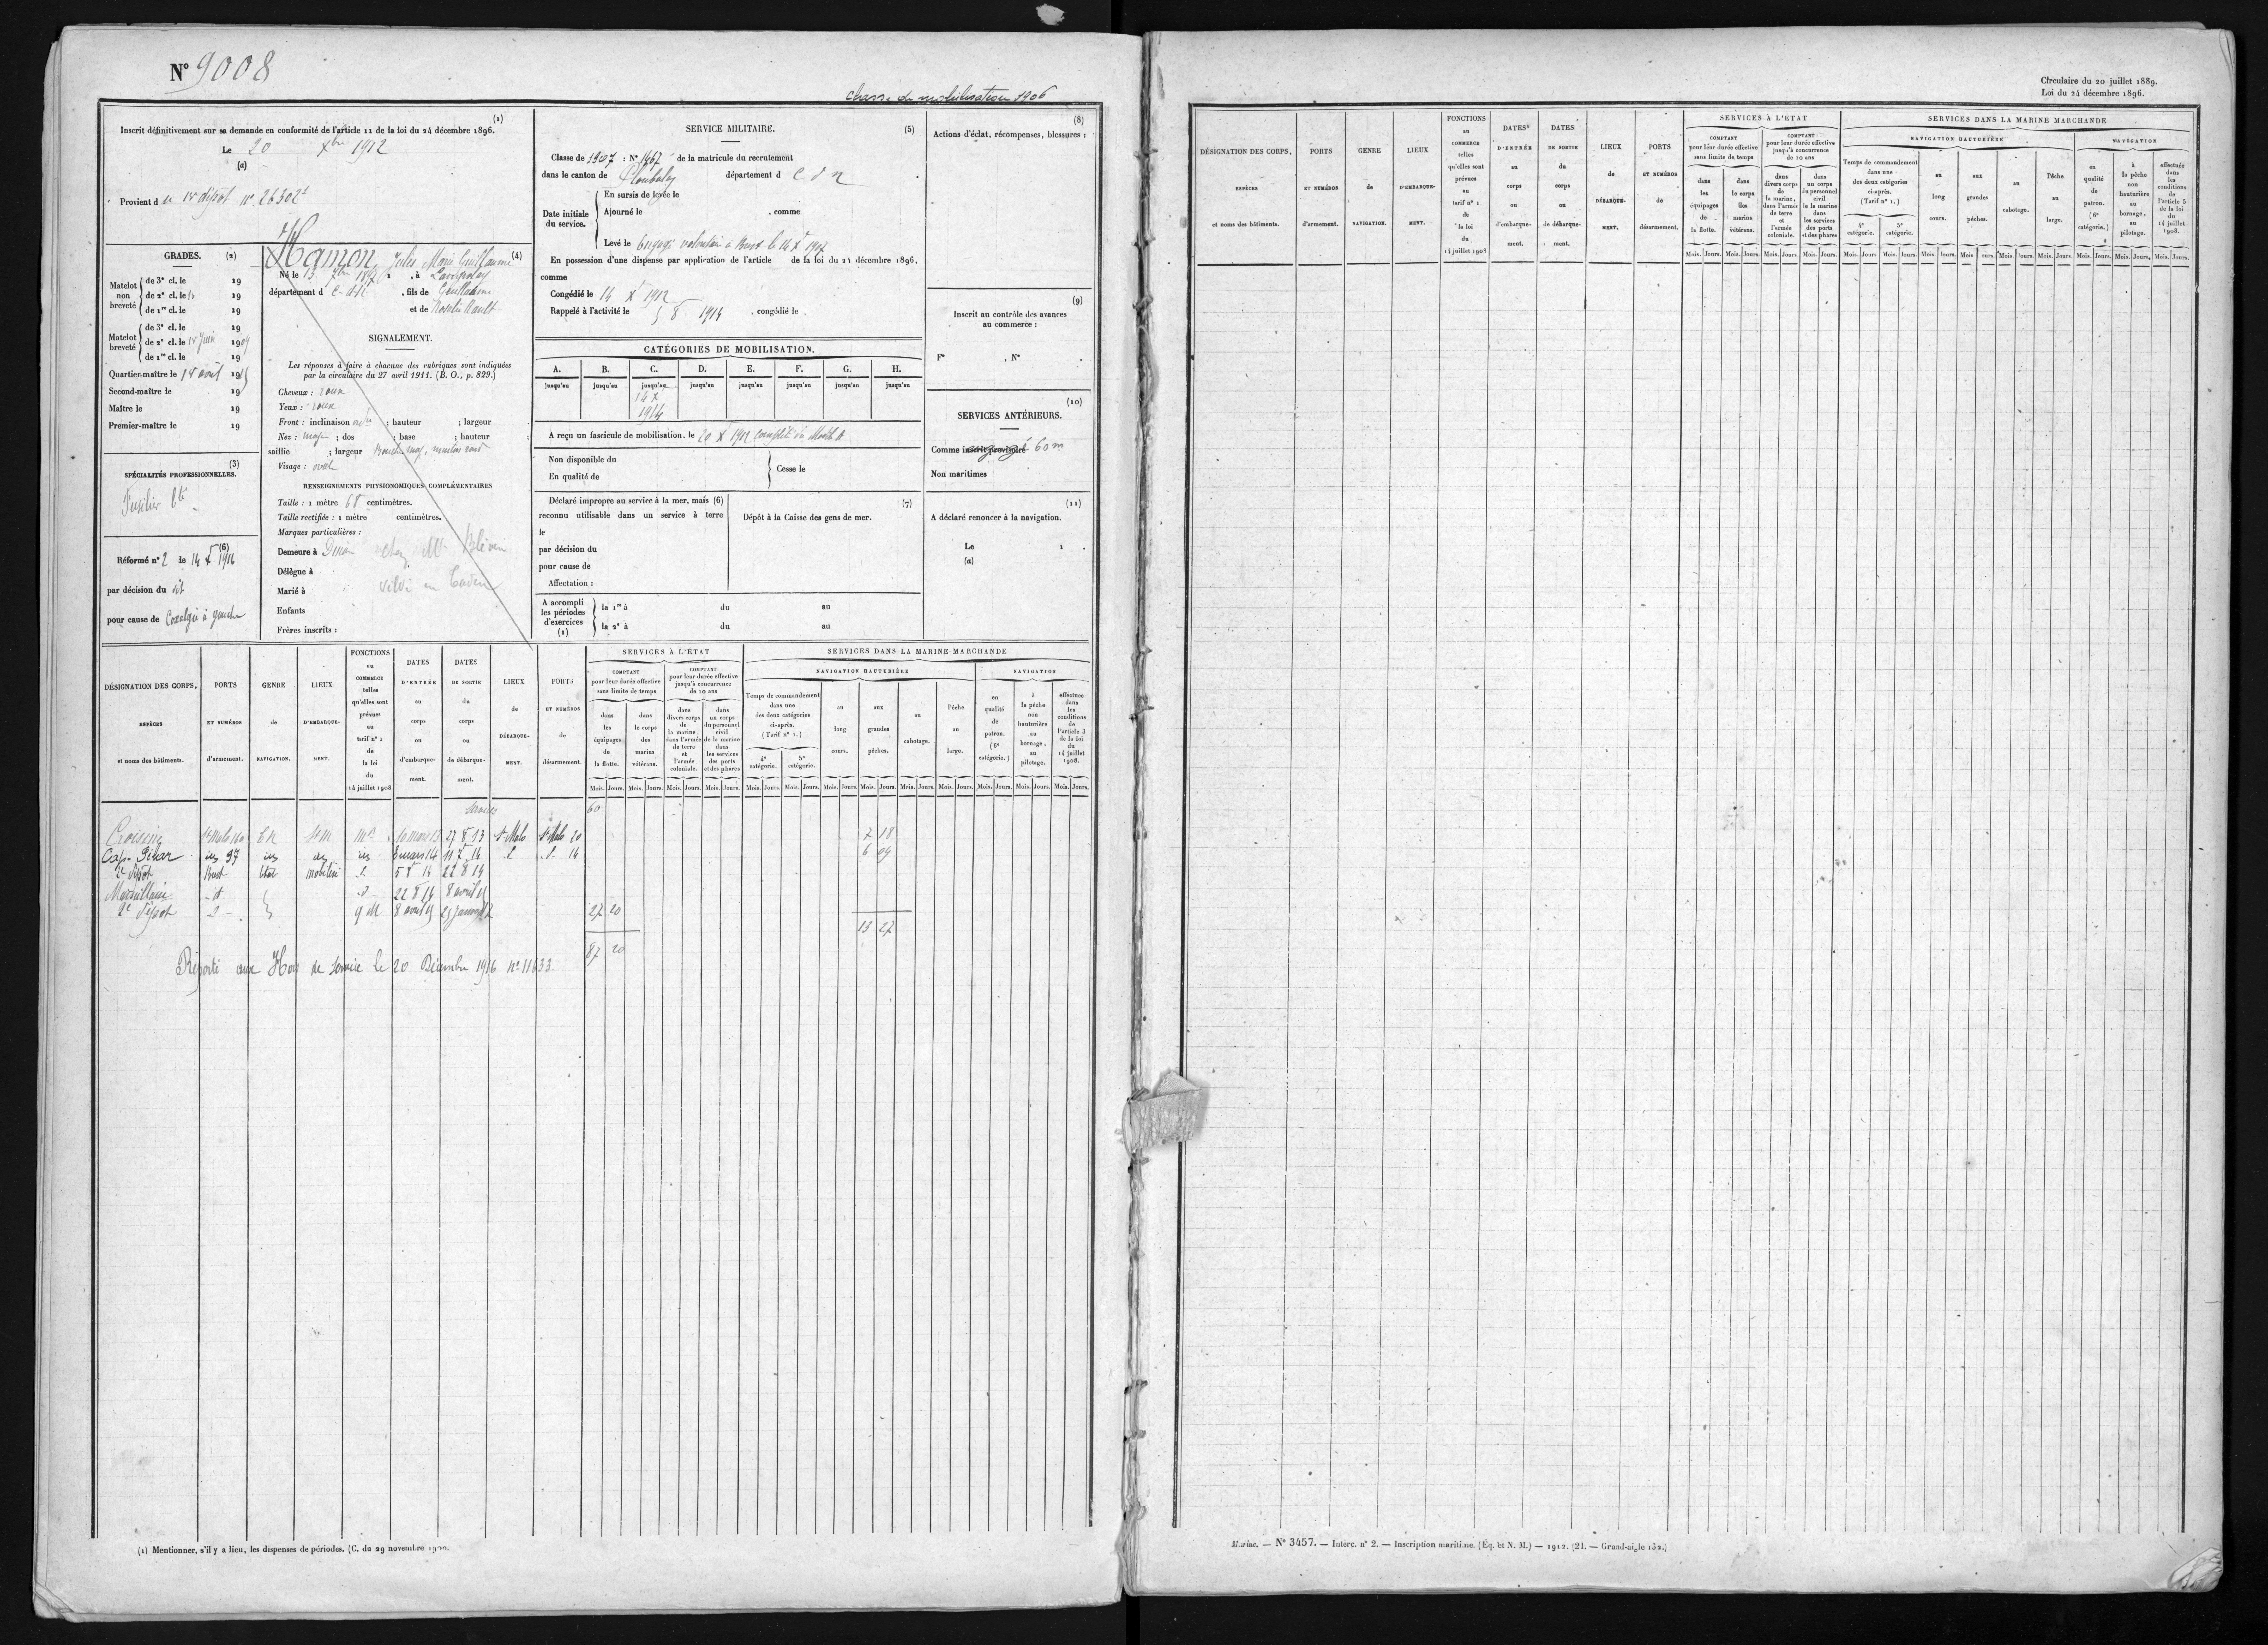 N° 9008
chasse de mobilisation 1906
(1)
Inscrit définitivement sur sa demande en conformité de l'article 11 de la loi du 24 décembre 1896.
Le 20 Xbre 1912
(a)
Provient du 1er dépôt n° 26302
GRADES. (2)
Matelot non breveté
de 3e cl. le 19
de 2e cl. le 19
de 1re cl. le 19
Matelot breveté
de 3e cl. le 19
de 2e cl. le 1er Juin 1909
de 1re cl. le 19
Quartier-maître le août 19
Second-maître le 19
Maître le 19
Premier-maître le 19
(3)
SPÉCIALITÉS PROFESSIONNELLES.
Fusilier bté
(6)
Réformé n° 2 le 14 X 1916
par décision du dit
pour cause de Coxalgie à gauche
Hamon, Jules Marie Guillaume (4)
Né le 13 à
département d C-d-N, fils de Guillaume
et de Rosalie Rault
SIGNALEMENT.
Les réponses à faire à chacune des rubriques sont indiquées
par la circulaire du 27 avril 1911. (B. O., p. 829.)
Cheveux : roux
Yeux : roux
Front : inclinaison ; hauteur ; largeur
Nez : moyen ; dos ; base ; hauteur
saillie ; largeur Bouche moy, menton rond
Visage : oval
RENSEIGNEMENTS PHYSIONOMIQUES COMPLÉMENTAIRES
Taille : 1 mètre 68 centimètres.
Taille rectifiée : 1 mètre centimètres.
Marques particulières :
Demeure à Dinan chez Mr
Délègue à
Marié à
Enfants
Frères inscrits :
SERVICE MILITAIRE. (5)
Classe de 1907 : N° 1467 de la matricule du recrutement
dans le canton de Ploubalay département d C d N
Date initiale du service.
En sursis de levée le
Ajourné le , comme
Levé le Engagé volontaire à Brest le 14 X 1907
En possession d'une dispense par application de l'article de la loi du 24 décembre 1896.
comme
Congédié le 14 X 1912
Rappelé à l'activité le 5 8 1914 , congédié le
CATÉGORIES DE MOBILISATION.
A. B. C. D. E. F. G. H.
jusqu'au jusqu'au jusqu'au jusqu'au jusqu'au jusqu'au jusqu'au jusqu'au
14 X
1914
A reçu un fascicule de mobilisation, le 20 X 1912
Non disponible du
En qualité de
Cesse le
Déclaré impropre au service à la mer, mais (6)
reconnu utilisable dans un service à terre
le
par décision du
pour cause de
Affectation :
(7)
Dépôt à la Caisse des gens de mer.
A accompli les périodes d'exercices (1)
la 1re à du au
la 2e à du au
(8)
Actions d'éclat, récompenses, blessures :
(9)
Inscrit au contrôle des avances
au commerce :
F° , N° .
(10)
SERVICES ANTÉRIEURS.
Comme inscrit provisoire 60 m
Non maritimes
(11)
A déclaré renoncer à la navigation.
Le 1
(a)
DÉSIGNATION DES CORPS, ESPÈCES et noms des bâtiments.
PORTS ET NUMÉROS d'armement.
GENRE de NAVIGATION.
LIEUX D'EMBARQUEMENT.
FONCTIONS au COMMERCE telles qu'elles sont prévues au tarif n° 1 de la loi du 14 juillet 1908
DATES D'ENTRÉE au corps ou d'embarquement.
DATES DE SORTIE du corps ou de débarquement.
LIEUX de DÉBARQUEMENT.
PORTS ET NUMÉROS de désarmement.
SERVICES À L'ÉTAT
COMPTANT pour leur durée effective sans limite de temps
dans les équipages de la flotte.
dans le corps des marins vétérans.
COMPTANT pour leur durée effective jusqu'à concurrence de 10 ans
dans divers corps de la marine, dans l'armée de terre et l'armée coloniale.
dans un corps du personnel civil de la marine dans les services des ports et des phares
SERVICES DANS LA MARINE MARCHANDE
NAVIGATION HAUTURIÈRE
Temps de commandement dans une des deux catégories ci-après. (Tarif n° 1.)
4e catégorie. 5e catégorie.
au long cours.
aux grandes pêches.
au cabotage.
Pêche au large.
NAVIGATION
en qualité de patron. (6e catégorie.)
à la pêche non hauturière au bornage, au pilotage.
effectuée dans les conditions de l'article 5 de la loi du 14 juillet 1908.
Mois. Jours.
Services 60
St Malo St M 10 mars 13 27 8 13 St Malo St Malo 20 7 18
Cap. Gibar 97 3 mars 14 14 6 09
2e dépôt Brest Etat mobilisé 5 8 14 22 8 14
Marseillaise d 22 8 14 8 avril 15
2e dépôt q M 8 avril 15 27 20
13 27
87 20
Reporté aux Hors de service le 20 Décembre 1916 n° 11633
(1) Mentionner, s'il y a lieu, les dispenses de périodes. (C. du 29 novembre 1900.
Circulaire du 20 juillet 1889.
Loi du 24 décembre 1896.
DÉSIGNATION DES CORPS, ESPÈCES et noms des bâtiments.
PORTS ET NUMÉROS d'armement.
GENRE de NAVIGATION.
LIEUX D'EMBARQUEMENT.
FONCTIONS au COMMERCE telles qu'elles sont prévues au tarif n° 1 de la loi du 14 juillet 1908
DATES D'ENTRÉE au corps ou d'embarquement.
DATES DE SORTIE du corps ou de débarquement.
LIEUX de DÉBARQUEMENT.
PORTS ET NUMÉROS de désarmement.
SERVICES À L'ÉTAT
COMPTANT pour leur durée effective sans limite de temps
dans les équipages de la flotte.
dans le corps des marins vétérans.
COMPTANT pour leur durée effective jusqu'à concurrence de 10 ans
dans divers corps de la marine, dans l'armée de terre et l'armée coloniale.
dans un corps du personnel civil de la marine dans les services des ports et des phares
SERVICES DANS LA MARINE MARCHANDE
NAVIGATION HAUTURIÈRE
Temps de commandement dans une des deux catégories ci-après. (Tarif n° 1.)
4e catégorie. 5e catégorie.
au long cours.
aux grandes pêches.
au cabotage.
Pêche au large.
NAVIGATION
en qualité de patron. (6e catégorie.)
à la pêche non hauturière au bornage, au pilotage.
effectuée dans les conditions de l'article 5 de la loi du 14 juillet 1908.
Mois. Jours.
Marine. — N° 3457. — Interc. n° 2. — Inscription maritime. (Éq. et N. M.) — 1912. (21. — Grand-aigle 132.)